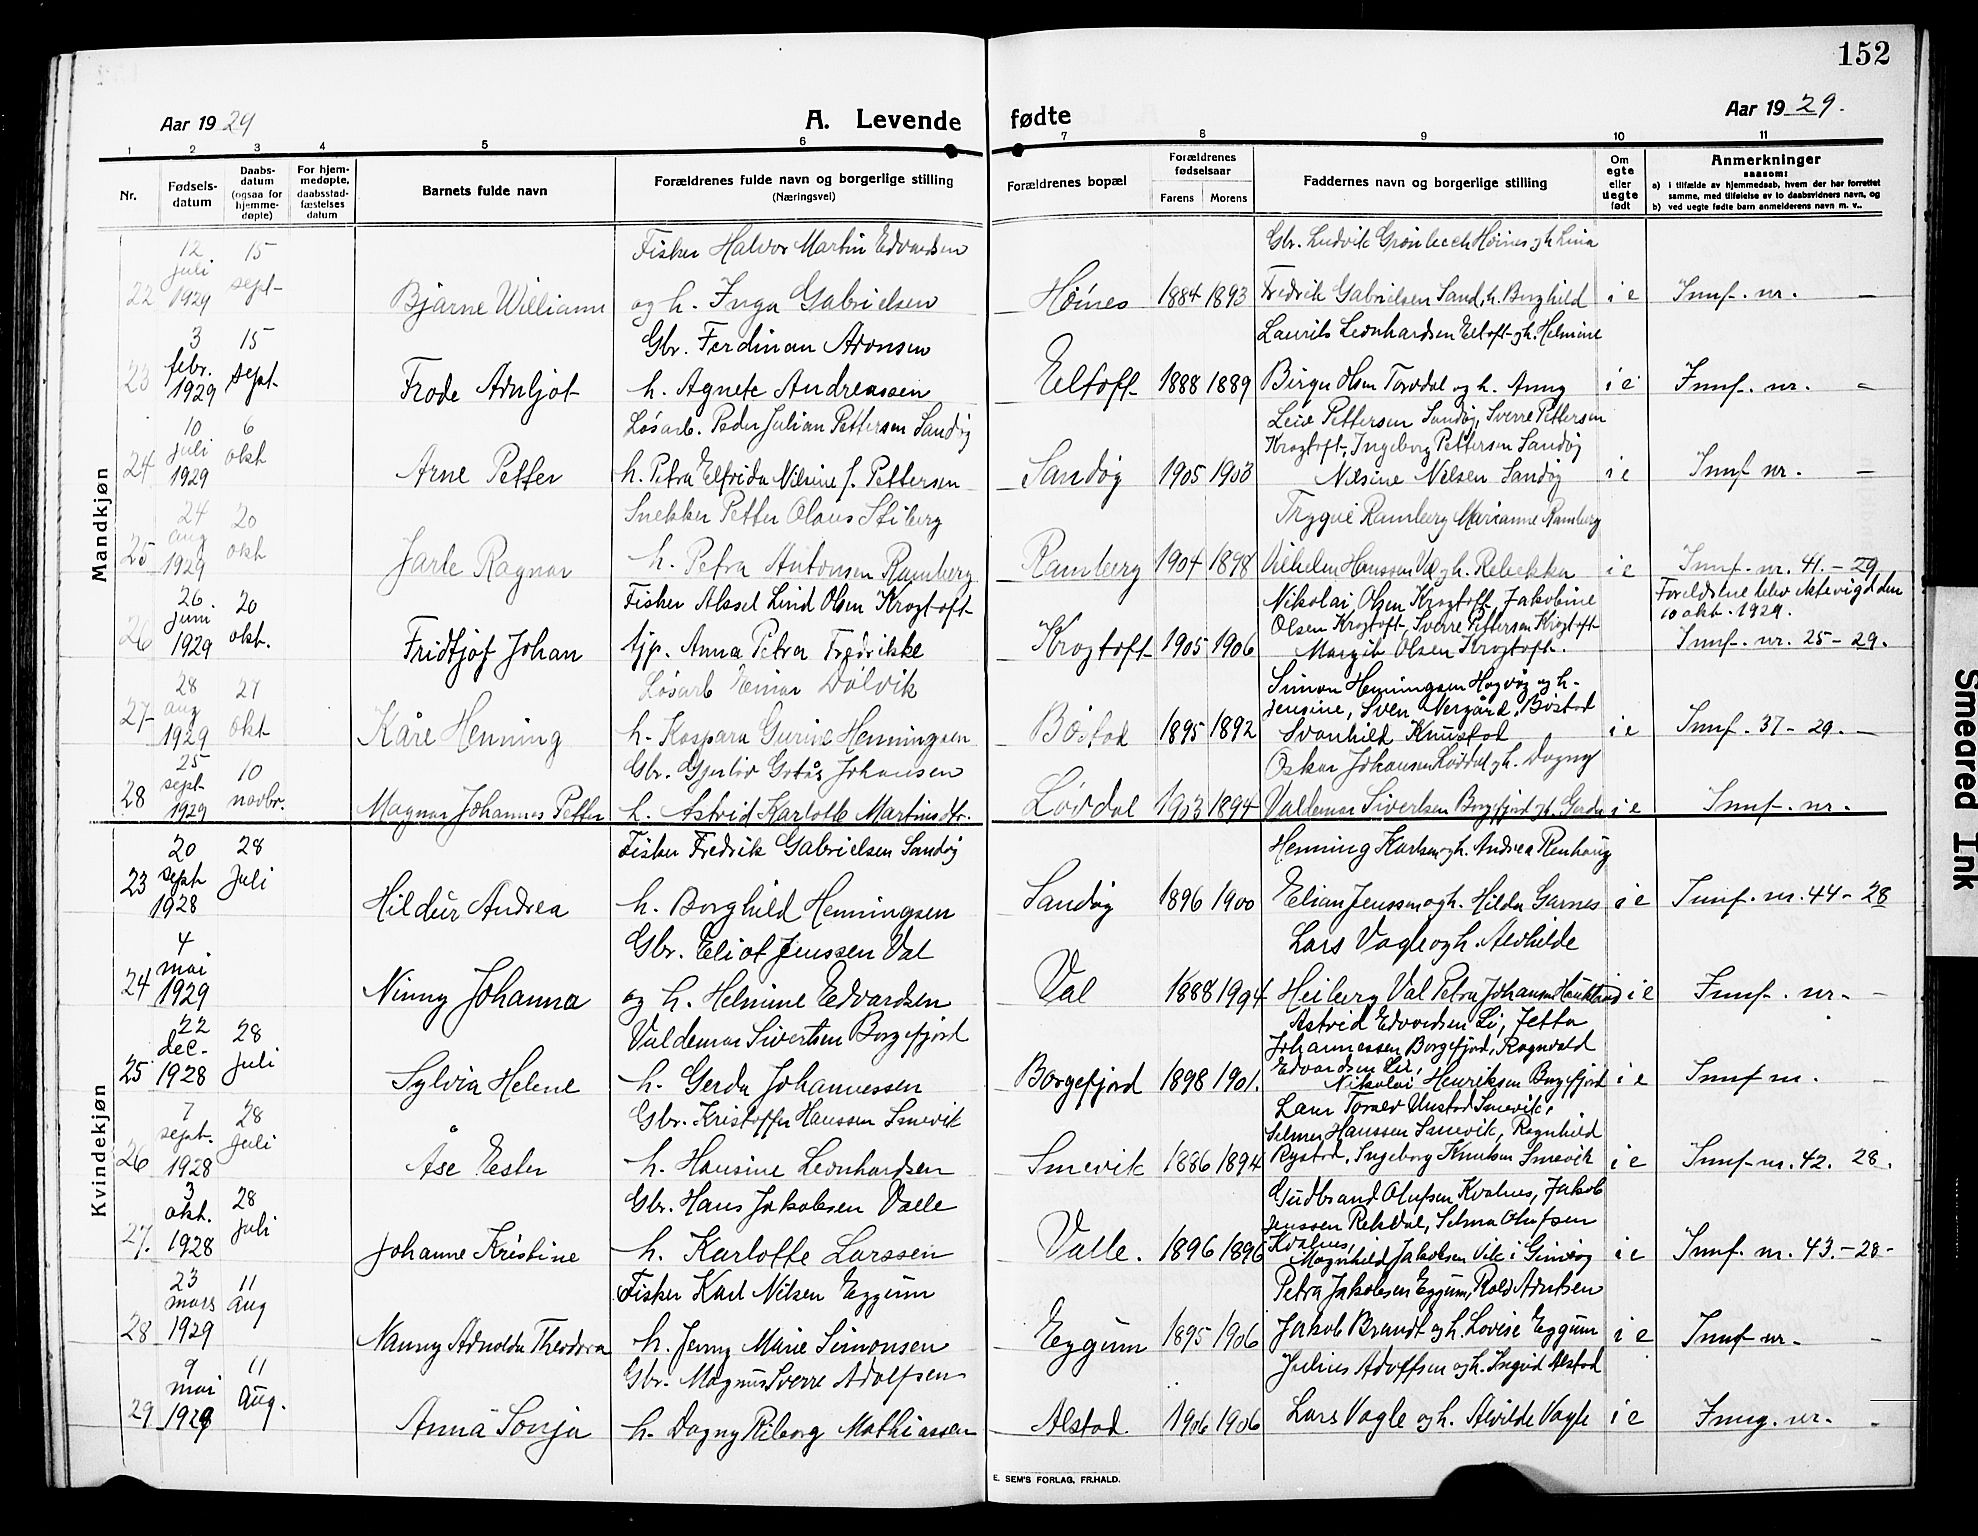 152
Aar 1929
A. Levende fødte
Aar 1929.
1 2 3 4 5 6 7 8 9 10 11
Nr.
Fødsels-datum
Daabs-datum (ogsaa for hjemme-døpte)
For hjem-medøpte, daabsstad-fæstelses datum
Barnets fulde navn
Forældrenes fulde navn og borgerlige stilling (Næringsvei)
Forældrenes bopæl
Forældrenes fødselsaar
Farens Morens
Faddernes navn og borgerlige stilling
Om egte eller uegte født
Anmerkninger
saasom:
a) i tilfælde av hjemmedaab, hvem der har forrettet samme, med tilføielse av to daabsvidners navn, og
b) ved uegte fødte barn anmelderens navn m. v..
Mandkjøn
22 12 juli 1929 15 sept- Bjarne William Fisker Halvor Martin Edvardsen og h. Inga Gabrielsen Høines 1884 1893 Gbr. Ludvik Grönbeck Høines og h Lina Fredrik Gabrielsen Sand, h. Borghild i e Innf. nr. —
23 3 febr. 1929 15 sept- Frode Arnljot Gbr. Ferdinan Aronsen h. Agnete Andreassen Eeltoft 1888 1889 Laurits Leonhardsen Eeltoft og h. Helmine Birger Olsen Torvdal og h. Anny i e Innf. nr. —
24 10 juli 1929 6 okt Arne Petter Løsarb. Peder Julian Pettersen Sandøy h. Petra Elfrida Nilsine f. Pettersen Sandøy 1905 1903 Leiv Pettersen Sandøy, Sverre Pettersen Krogtoft, Ingeborg Pettersen Sandøy Nilsine Nilsen Sandøy i e Innf nr. —
25 24 aug 1929 20 okt Jarle Ragnar Snekker Petter Olaus Stiberg h. Petra Antonsen Ramberg Ramberg 1904 1898 Trygve Ramberg Marianne Ramberg Vilhelm Hanssen Val og h. Rebekka i e Innf. nr. 41.-29
26 26. juni 1929 20 okt. Fridtjof Johan Fisker Aksel Lind Olsen Krogtoft tjp. Anna Petra Fredrikke Krogtoft 1905 1906 Nikolai Olsen Krogtoft, Jakobine Olsen Krogtoft, Sverre Pettersen Krogtoft Margit Olsen Krogtoft. Foreldrene blev ektevigd den 10 okt. 1929. Innf. nr. 25-29.
27 28 aug 1929 27 okt Kåre Henning Løsarb Einar Dolvik h. Kaspara Gurine Henningsen Bøstad 1895 1892 Simon Henningsen Hagvåg og h. Jensine, Sven Nergård, Bøstad Svanhild Knustad i e Innf. 37-29.—
28 25 sept- 1929 10 novbr. Magnar Johannes Petter Gbr. Gjerløv Gotås Johansen h. Astrid Karlotte Martinsdtr. Lövdal 1903 1894 Oskar Johansen Lövdal og h. Dagny Valdemar Sivertsen Borgefjord og h. Gerda i e Innf. nr.
Kvindekjøn
23 20 sept 1928 28 juli Hildur Andrea Fisker Fredrik Gabrielsen Sandøy h. Borghild Henningsen Sandøy 1896 1900 Henning Karlsen og h. Andrea Renhaug Elian Jenssen og h. Hilda Garnes Lars Vagle og h. Alvhilde i e Innf. nr. 44-28
24 4 mai 1929 Ninny Johanna Gbr. Eliot Jenssen Val og h. Helmine Edvardsen Val 1888 1994 Heiberg Val Petra Johansen Haukland Astrid Edvardsen Li, Jetta Johannessen Borgefjord, Ragnvald Edvardsen Lie, i e Innf. nr. -
25 22 dec. 1928 28 juli Sylvia Helene Valdemar Sivertsen Borgefjord h. Gerda Johannessen Borgefjord 1898 1901. Nikolai Henriksen Borgefjord i e Innf nr. -
26 7 sept. 1928 28 juli Åse Ester Gbr. Kristoffer Hanssen Smevik h. Hansine Leonhardsen Smevik 1886 1894 Selmer Hanssen Smevik, Ragnhild Rystad, Ingeborg Knutsen Smevik i e Innf- nr. 42. 28.
27. 3 okt. 1928 28 juli Johanne Kristine Gbr. Hans Jakobsen Valle h. Karlotte Larssen Valle. 1896 1896 Gudbrand Olufsen Kvalnes, Jakob Jenssen Rekdal, Selma Olufsen Kvalnes, Magnhild Jakobsen Vik i Gimsøy i e Innf. nr. 43.-28-
28 23 mars 1929 11 aug Nanny Arnolda Theodora Fisker Karl Nilsen Eggum h. Jenny Marie Simonsen Eggum 1895 1906 Petra Jakobsen Eggum, Rold Arntsen Jakob Brandt og h. Lovise Eggum i e Innf nr. -
29 9 mai 1929 11 Aug. Anna Sonja Gbr. Magnus Sverre Adolfsen h. Dagny Riborg Mathiassen Alstad. 1906 1906 Julius Adolfsen og h. Ingrid Alstad Lars Vagle og h. Alvilde Vagle i e Innf. nr. -
E. SEM'S FORLAG, FR.HALD.
Smeared Ink